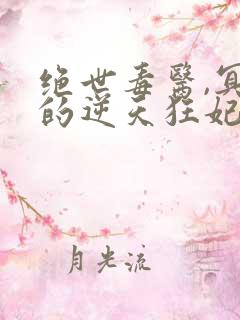 绝世毒醫,冥
的逆天狂妃
月光流